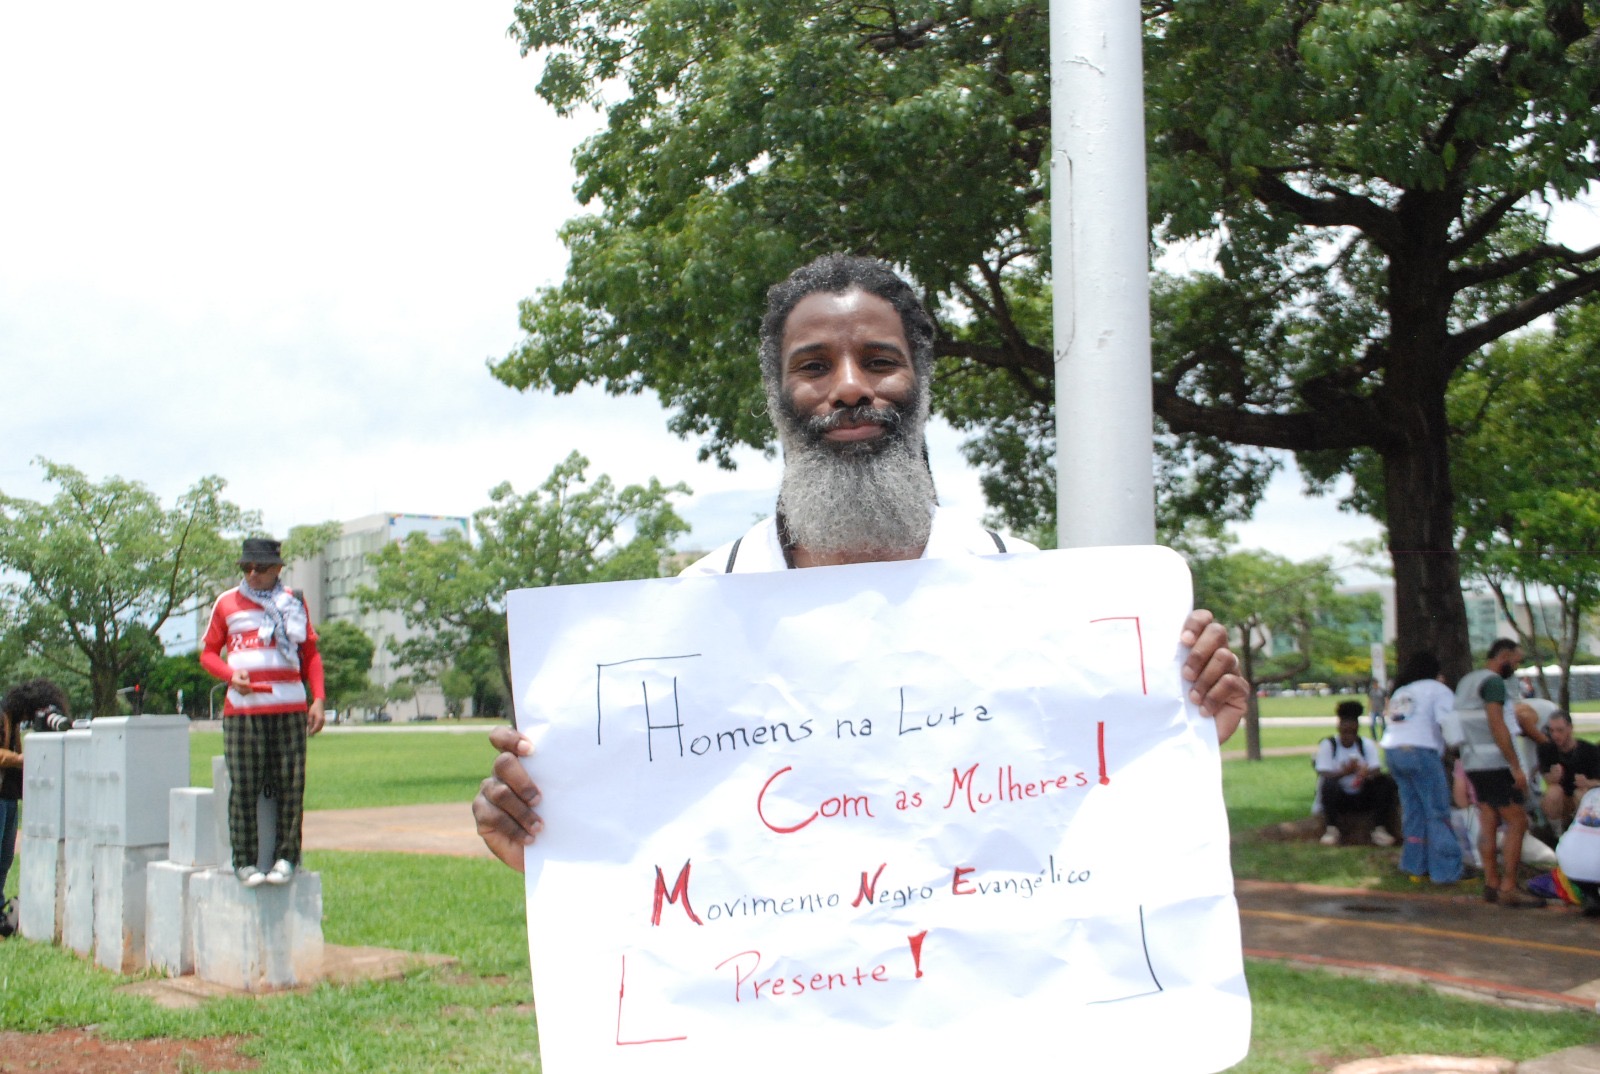 Homens na Luta
Com as Mulheres!
Movimento Negro Evangélico
Presente!